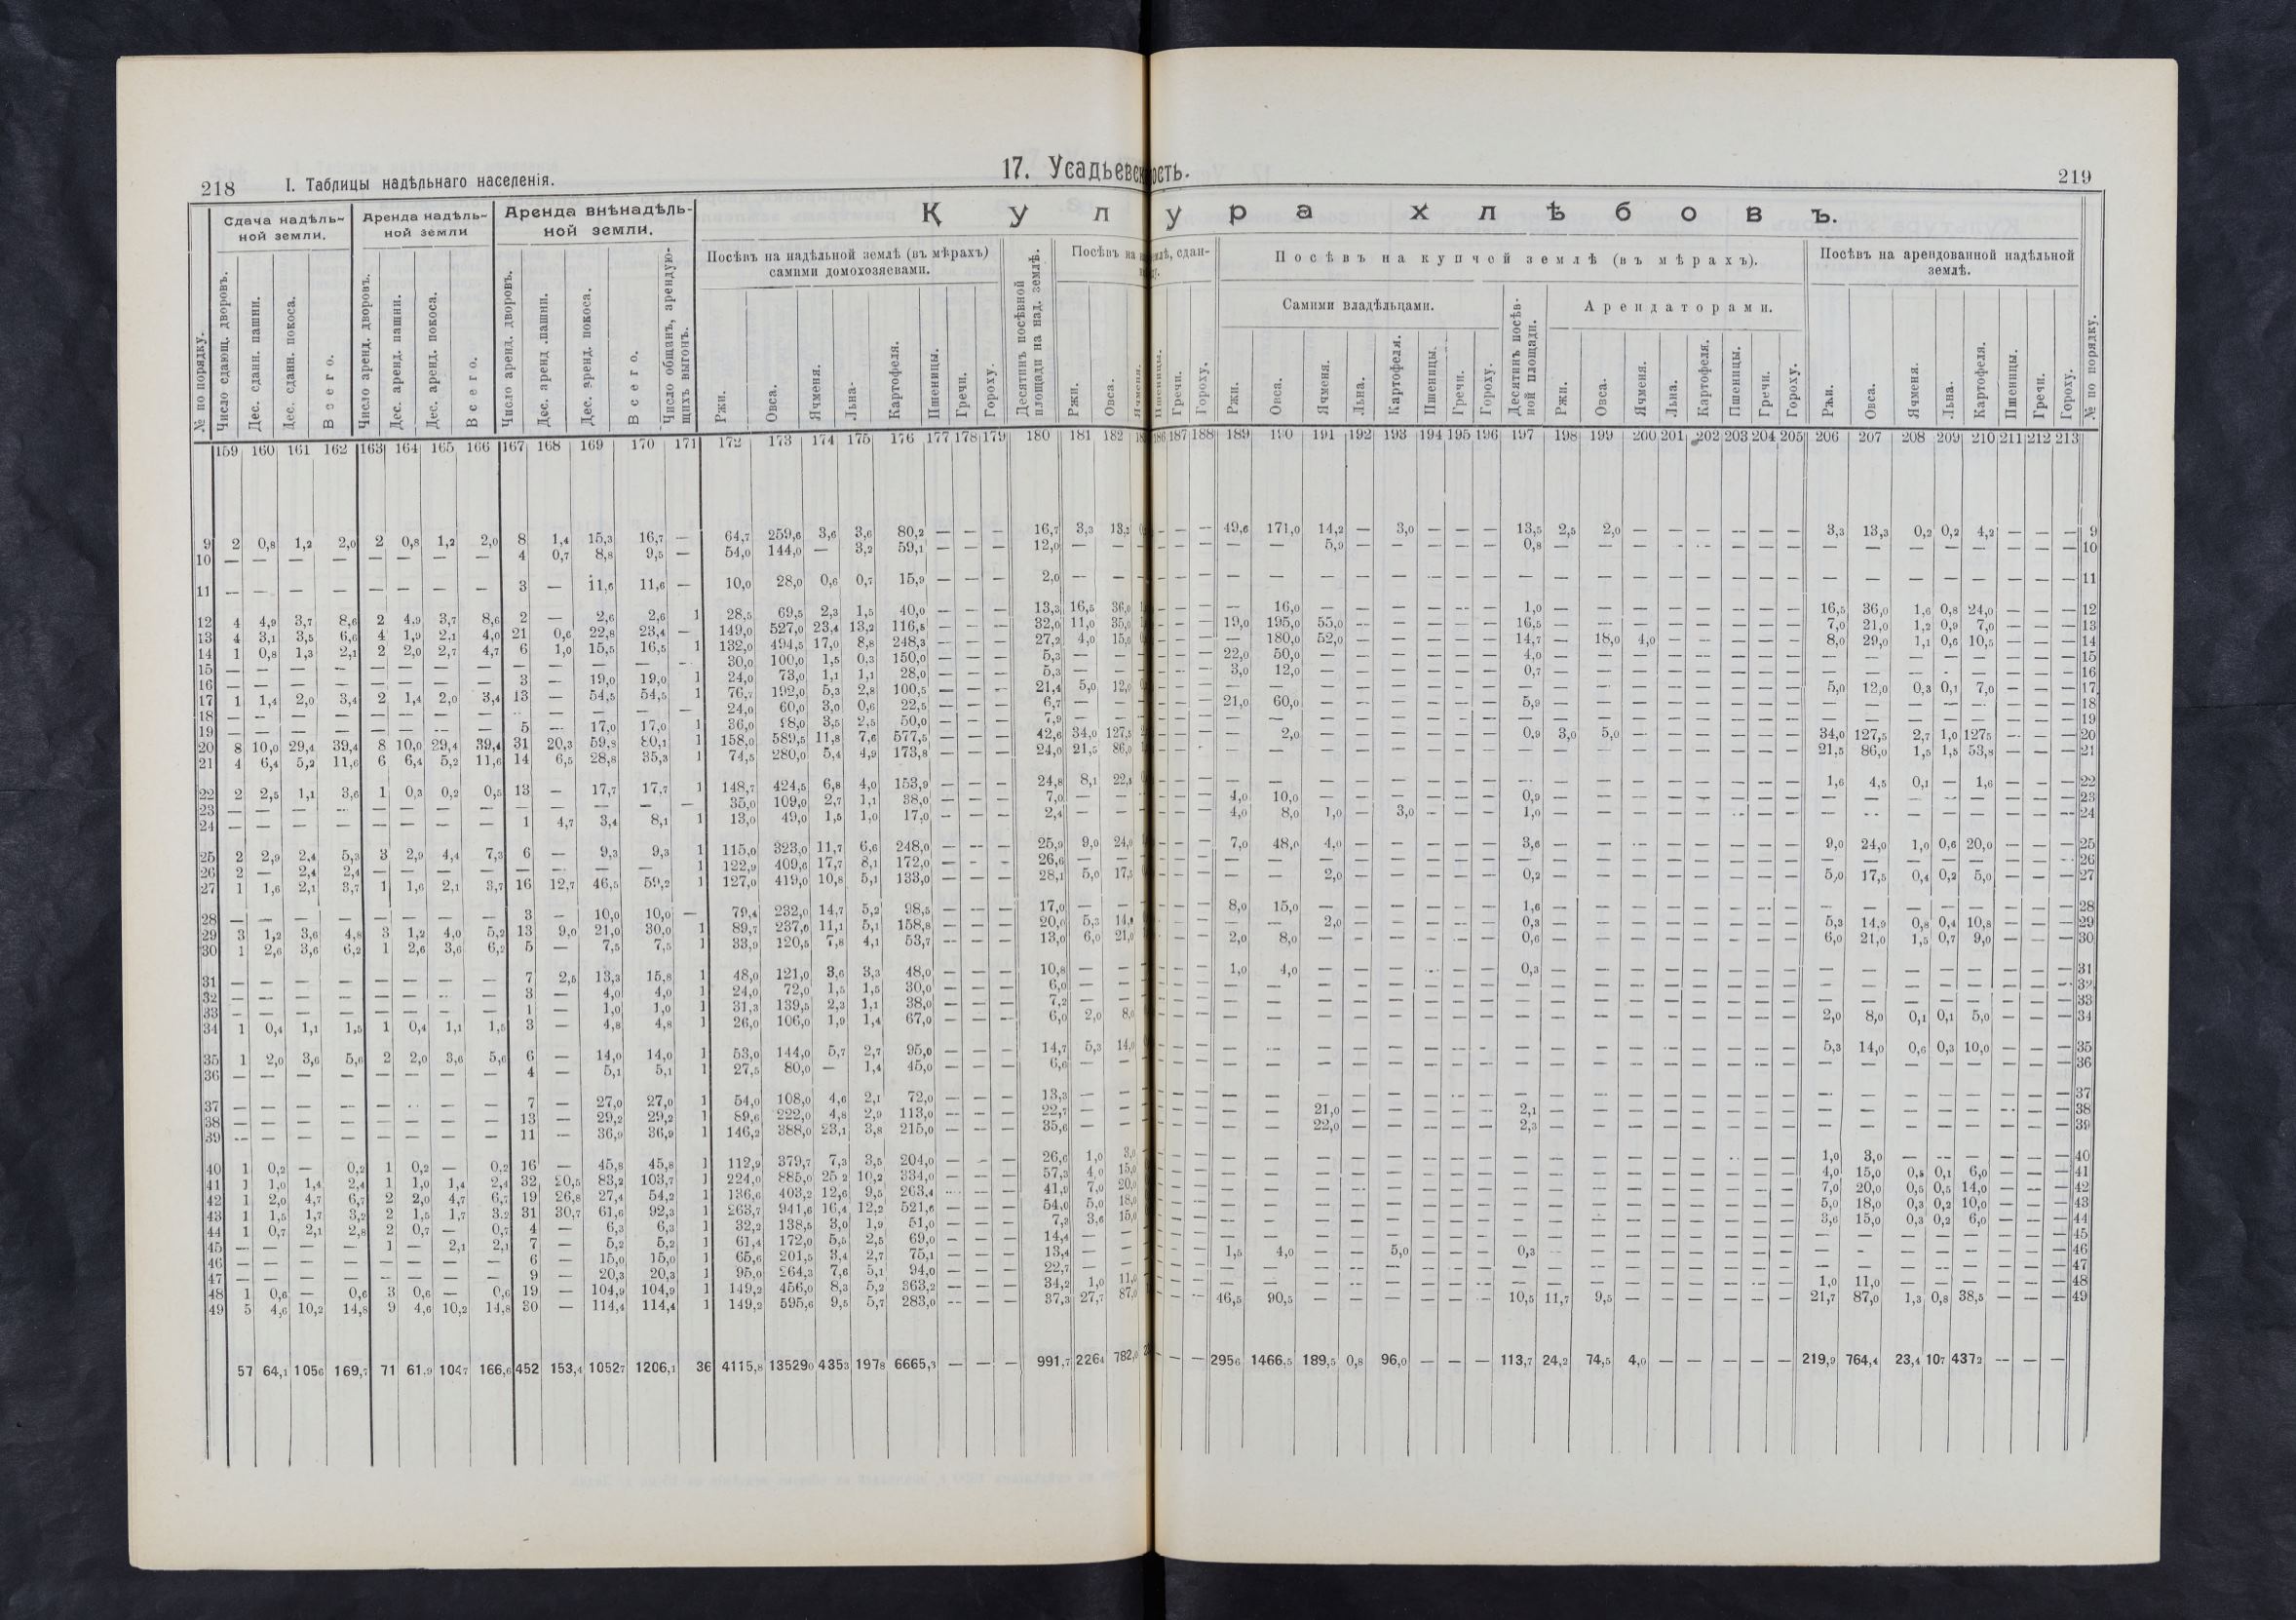 218 I. Таблицы надѣльнаго населенія.
17. Усадьевск ость.
219
К у л у р а х л ѣ б о в ъ.
Сдача надѣль-
ной земли.
Аренда надѣль-
ной земли
Аренда внѣнадѣль-
ной земли.
Посѣвъ на надѣльной землѣ (въ мѣрахъ)
самими домохозяевами.
Посѣвъ на
сдан-
Посѣвъ на купчей землѣ (въ мѣрахъ).
Самими владѣльцами.
Арендаторами.
Посѣвъ на арендованной надѣльной
землѣ.
№ по порядку.
Число сдающ. дворовъ.
Дес. сданн. пашни.
Дес. сданн. покоса.
Всего.
Число аренд. дворовъ.
Дес. аренд. пашни.
Дес. аренд. покоса.
Всего.
Число аренд. дворовъ.
Дес. аренд. пашни.
Дес. аренд. покоса.
Всего.
Число общинъ, арендую-
щихъ выгонъ.
Ржи.
Овса.
Ячменя.
Льна-
Картофеля.
Пшеницы.
Гречи.
Гороху.
Десятинъ посѣвной
площади на над. землѣ.
Ржи.
Овса.
Ячменя.
Пшеницы.
Гречи.
Гороху.
Ржи.
Овса.
Ячменя.
Льна.
Картофеля.
Пшеницы.
Гречи.
Гороху.
Десятинъ посѣв-
ной площади.
Ржи.
Овса.
Ячменя.
Льна.
Картофеля.
Пшеницы.
Гречи.
Гороху.
Ржи.
Овса.
Ячменя.
Льна.
Картофеля.
Пшеницы.
Гречи.
Гороху.
№ по порядку.
159 160 161 162 163 164 165 166 167 168 169 170 171 172 173 174 175 176 177 178 179 180 181 182 186 187 188 189 190 191 192 193 194 195 196 197 198 199 200 201 202 203 204 205 206 207 208 209 210 211 212 213
9 2 0,8 1,2 2,0 2 0,8 1,2 2,0 8 1,4 15,3 16,7 — 64,7 259,6 3,6 3,6 80,2 — — — 16,7 3,3 13,2 — — — 49,6 171,0 14,2 — 3,0 — — — 13,5 2,5 2,0 — — — — — — 3,3 13,3 0,2 0,2 4,2 — — — 9
10 — — — — — — — — 4 0,7 8,8 9,5 — 54,0 144,0 — 3,2 59,1 — — — 12,0 — — — — — — — 5,9 — — — — — 0,8 — — — — — — — — — — — — — — — — 10
11 — — — — — — — — 3 — 11,6 11,6 — 10,0 28,0 0,6 0,7 15,9 — — — 2,0 — — — — — — — — — — — — — — — — — — — — — — — — — — — — — — 11
12 4 4,9 3,7 8,6 2 4,9 3,7 8,6 2 — 2,6 2,6 1 28,5 69,5 2,3 1,5 40,0 — — — 13,3 16,5 36,0 — — — — 16,0 — — — — — — 1,0 — — — — — — — — 16,5 36,0 1,6 0,8 24,0 — — — 12
13 4 3,1 3,5 6,6 4 1,9 2,1 4,0 21 0,6 22,8 23,4 — 149,0 527,0 23,4 13,2 116,5 — — — 32,0 11,0 35,0 — — — 19,0 195,0 55,0 — — — — — 16,5 — — — — — — — — 7,0 21,0 1,2 0,9 7,0 — — — 13
14 1 0,8 1,3 2,1 2 2,0 2,7 4,7 6 1,0 15,5 16,5 1 132,0 494,5 17,0 8,8 248,3 — — — 27,2 4,0 15,0 — — — — 180,0 52,0 — — — — — 14,7 — 18,0 4,0 — — — — — 8,0 29,0 1,1 0,6 10,5 — — — 14
15 — — — — — — — — — — — — — 30,0 100,0 1,5 0,3 150,0 — — — 5,3 — — — — — 22,0 50,0 — — — — — — 4,0 — — — — — — — — — — — — — — — — 15
16 — — — — — — — — 3 — 19,0 19,0 1 24,0 73,0 1,1 1,1 28,0 — — — 5,3 — — — — — 3,0 12,0 — — — — — — 0,7 — — — — — — — — — — — — — — — — 16
17 1 1,4 2,0 3,4 2 1,4 2,0 3,4 13 — 54,5 54,5 1 76,7 192,0 5,3 2,8 100,5 — — — 21,4 5,0 12,0 — — — — — — — — — — — — — — — — — — — — 5,0 12,0 0,3 0,1 7,0 — — — 17
18 — — — — — — — — — — — — — 24,0 60,0 3,0 0,6 22,5 — — — 6,7 — — — — — 21,0 60,0 — — — — — — 5,9 — — — — — — — — — — — — — — — — 18
19 — — — — — — — — 5 — 17,0 17,0 1 36,0 98,0 3,5 2,5 50,0 — — — 7,9 — — — — — — — — — — — — — — — — — — — — — — — — — — — — — — 19
20 8 10,0 29,4 39,4 8 10,0 29,4 39,4 31 20,3 59,8 80,1 1 158,0 589,5 11,8 7,6 577,5 — — — 42,6 34,0 127,5 — — — — 2,0 — — — — — — 0,9 3,0 5,0 — — — — — — 34,0 127,5 2,7 1,0 1275 — — — 20
21 4 6,4 5,2 11,6 6 6,4 5,2 11,6 14 6,5 28,8 35,3 1 74,5 280,0 5,4 4,9 173,8 — — — 24,0 21,5 86,0 — — — — — — — — — — — — — — — — — — — — 21,5 86,0 1,5 1,5 53,8 — — — 21
22 2 2,5 1,1 3,6 1 0,3 0,2 0,5 13 — 17,7 17,7 1 148,7 424,5 6,8 4,0 153,9 — — — 24,8 8,1 22,5 — — — — — — — — — — — — — — — — — — — — 1,6 4,5 0,1 — 1,6 — — — 22
23 — — — — — — — — — — — — — 35,0 109,0 2,7 1,1 38,0 — — — 7,0 — — — — — 4,0 10,0 — — — — — — 0,9 — — — — — — — — — — — — — — — — 23
24 — — — — — — — — 1 4,7 3,4 8,1 1 13,0 49,0 1,5 1,0 17,0 — — — 2,4 — — — — — 4,0 8,0 1,0 — 3,0 — — — 1,0 — — — — — — — — — — — — — — — — 24
25 2 2,9 2,4 5,3 3 2,9 4,4 7,3 6 — 9,3 9,3 1 115,0 323,0 11,7 6,6 248,0 — — — 25,9 9,0 24,0 — — — 7,0 48,0 4,0 — — — — — 3,6 — — — — — — — — 9,0 24,0 1,0 0,6 20,0 — — — 25
26 2 — 2,4 2,4 — — — — — — — — 1 122,9 409,6 17,7 8,1 172,0 — — — 26,6 — — — — — — — — — — — — — — — — — — — — — — — — — — — — — — 26
27 1 1,6 2,1 3,7 1 1,6 2,1 3,7 16 12,7 46,5 59,2 1 127,0 419,0 10,8 5,1 133,0 — — — 28,1 5,0 17,5 — — — — — 2,0 — — — — — 0,2 — — — — — — — — 5,0 17,5 0,4 0,2 5,0 — — — 27
28 — — — — — — — — 3 — 10,0 10,0 — 79,4 232,0 14,7 5,2 98,5 — — — 17,0 — — — — — 8,0 15,0 — — — — — — 1,6 — — — — — — — — — — — — — — — — 28
29 3 1,2 3,6 4,8 3 1,2 4,0 5,2 13 9,0 21,0 30,0 1 89,7 237,0 11,1 5,1 158,8 — — — 20,0 5,3 — — — — — 2,0 — — — — — 0,3 — — — — — — — — 5,3 14,9 0,8 0,4 10,8 — — — 29
30 1 2,6 3,6 6,2 1 2,6 3,6 6,2 5 — 7,5 7,5 1 33,9 120,5 7,8 4,1 53,7 — — — 13,0 6,0 21,0 — — — 2,0 8,0 — — — — — — 0,6 — — — — — — — — 6,0 21,0 1,5 0,7 9,0 — — — 30
31 — — — — — — — — 7 2,5 13,3 15,8 1 48,0 121,0 3,6 3,3 48,0 — — — 10,8 — — — — — 1,0 4,0 — — — — — — 0,3 — — — — — — — — — — — — — — — — 31
32 — — — — — — — — 3 — 4,0 4,0 1 24,0 72,0 1,5 1,5 30,0 — — — 6,0 — — — — — — — — — — — — — — — — — — — — — — — — — — — — — — 32
33 — — — — — — — — 1 — 1,0 1,0 1 31,3 139,5 2,3 1,1 38,0 — — — 7,2 — — — — — — — — — — — — — — — — — — — — — — — — — — — — — — 33
34 1 0,4 1,1 1,5 1 0,4 1,1 1,5 3 — 4,8 4,8 1 26,0 106,0 1,9 1,4 67,0 — — — 6,0 2,0 8,0 — — — — — — — — — — — — — — — — — — — — 2,0 8,0 0,1 0,1 5,0 — — — 34
35 1 2,0 3,6 5,6 2 2,0 3,6 5,6 6 — 14,0 14,0 1 53,0 144,0 5,7 2,7 95,0 — — — 14,7 5,3 14,0 — — — — — — — — — — — — — — — — — — — — 5,3 14,0 0,6 0,3 10,0 — — — 35
36 — — — — — — — — 4 — 5,1 5,1 1 27,5 80,0 — 1,4 45,0 — — — 6,6 — — — — — — — — — — — — — — — — — — — — — — — — — — — — — — 36
37 — — — — — — — — 7 — 27,0 27,0 1 54,0 108,0 4,6 2,1 72,0 — — — 13,3 — — — — — — — — — — — — — — — — — — — — — — — — — — — — — — 37
38 — — — — — — — — 13 — 29,2 29,2 1 89,6 222,0 4,8 2,9 113,0 — — — 22,7 — — — — — — — 21,0 — — — — — 2,1 — — — — — — — — — — — — — — — — 38
39 — — — — — — — — 11 — 36,9 36,9 1 146,2 388,0 23,1 3,8 215,0 — — — 35,6 — — — — — — — 22,0 — — — — — 2,3 — — — — — — — — — — — — — — — — 39
40 1 0,2 — 0,2 1 0,2 — 0,2 16 — 45,8 45,8 1 112,9 379,7 7,3 3,5 204,0 — — — 26,6 1,0 3,0 — — — — — — — — — — — — — — — — — — — — 1,0 3,0 — — — — — — 40
41 1 1,0 1,4 2,4 1 1,0 1,4 2,4 32 20,5 83,2 103,7 1 224,0 885,0 25 2 10,2 334,0 — — — 57,3 4,0 15,0 — — — — — — — — — — — — — — — — — — — — 4,0 15,0 0,5 0,1 6,0 — — — 41
42 1 2,0 4,7 6,7 2 2,0 4,7 6,7 19 26,8 27,4 54,2 1 136,6 403,2 12,6 9,5 263,4 — — — 41,9 7,0 20,0 — — — — — — — — — — — — — — — — — — — — 7,0 20,0 0,5 0,5 14,0 — — — 42
43 1 1,5 1,7 3,2 2 1,5 1,7 3,2 31 30,7 61,6 92,3 1 263,7 941,6 16,4 12,2 521,6 — — — 54,0 5,0 18,0 — — — — — — — — — — — — — — — — — — — — 5,0 18,0 0,3 0,2 10,0 — — — 43
44 1 0,7 2,1 2,8 2 0,7 — 0,7 4 — 6,3 6,3 1 32,2 138,5 3,0 1,9 51,0 — — — 7,3 3,6 15,0 — — — — — — — — — — — — — — — — — — — — 3,6 15,0 0,3 0,2 6,0 — — — 44
45 — — — — 1 — 2,1 2,1 7 — 5,2 5,2 1 61,4 172,0 5,5 2,5 69,0 — — — 14,4 — — — — — — — — — — — — — — — — — — — — — — — — — — — — — — 45
46 — — — — — — — — 6 — 15,0 15,0 1 65,6 201,5 3,4 2,7 75,1 — — — 13,4 — — — — — 1,5 4,0 — — 5,0 — — — 0,3 — — — — — — — — — — — — — — — — 46
47 — — — — — — — — 9 — 20,3 20,3 1 95,0 264,3 7,6 5,1 94,0 — — — 22,7 — — — — — — — — — — — — — — — — — — — — — — — — — — — — — — 47
48 1 0,6 — 0,6 3 0,6 — 0,6 19 — 104,9 104,9 1 149,2 456,0 8,3 5,2 363,2 — — — 34,2 1,0 11,0 — — — — — — — — — — — — — — — — — — — — 1,0 11,0 — — — — — — 48
49 5 4,6 10,2 14,8 9 4,6 10,2 14,8 30 — 114,4 114,4 1 149,2 595,6 9,5 5,7 283,0 — — — 37,3 27,7 87,0 — — — 46,5 90,5 — — — — — — 10,5 11,7 9,5 — — — — — — 21,7 87,0 1,3 0,8 38,5 — — — 49
57 64,1 1056 169,7 71 61,9 1047 166,6 452 153,4 10527 1206,1 36 4115,8 135290 4353 1978 6665,3 — — — 991,7 2264 782,0 — — — 2956 1466,5 189,5 0,8 96,0 — — — 113,7 24,2 74,5 4,0 — — — — — 219,9 764,4 23,4 107 4372 — — —